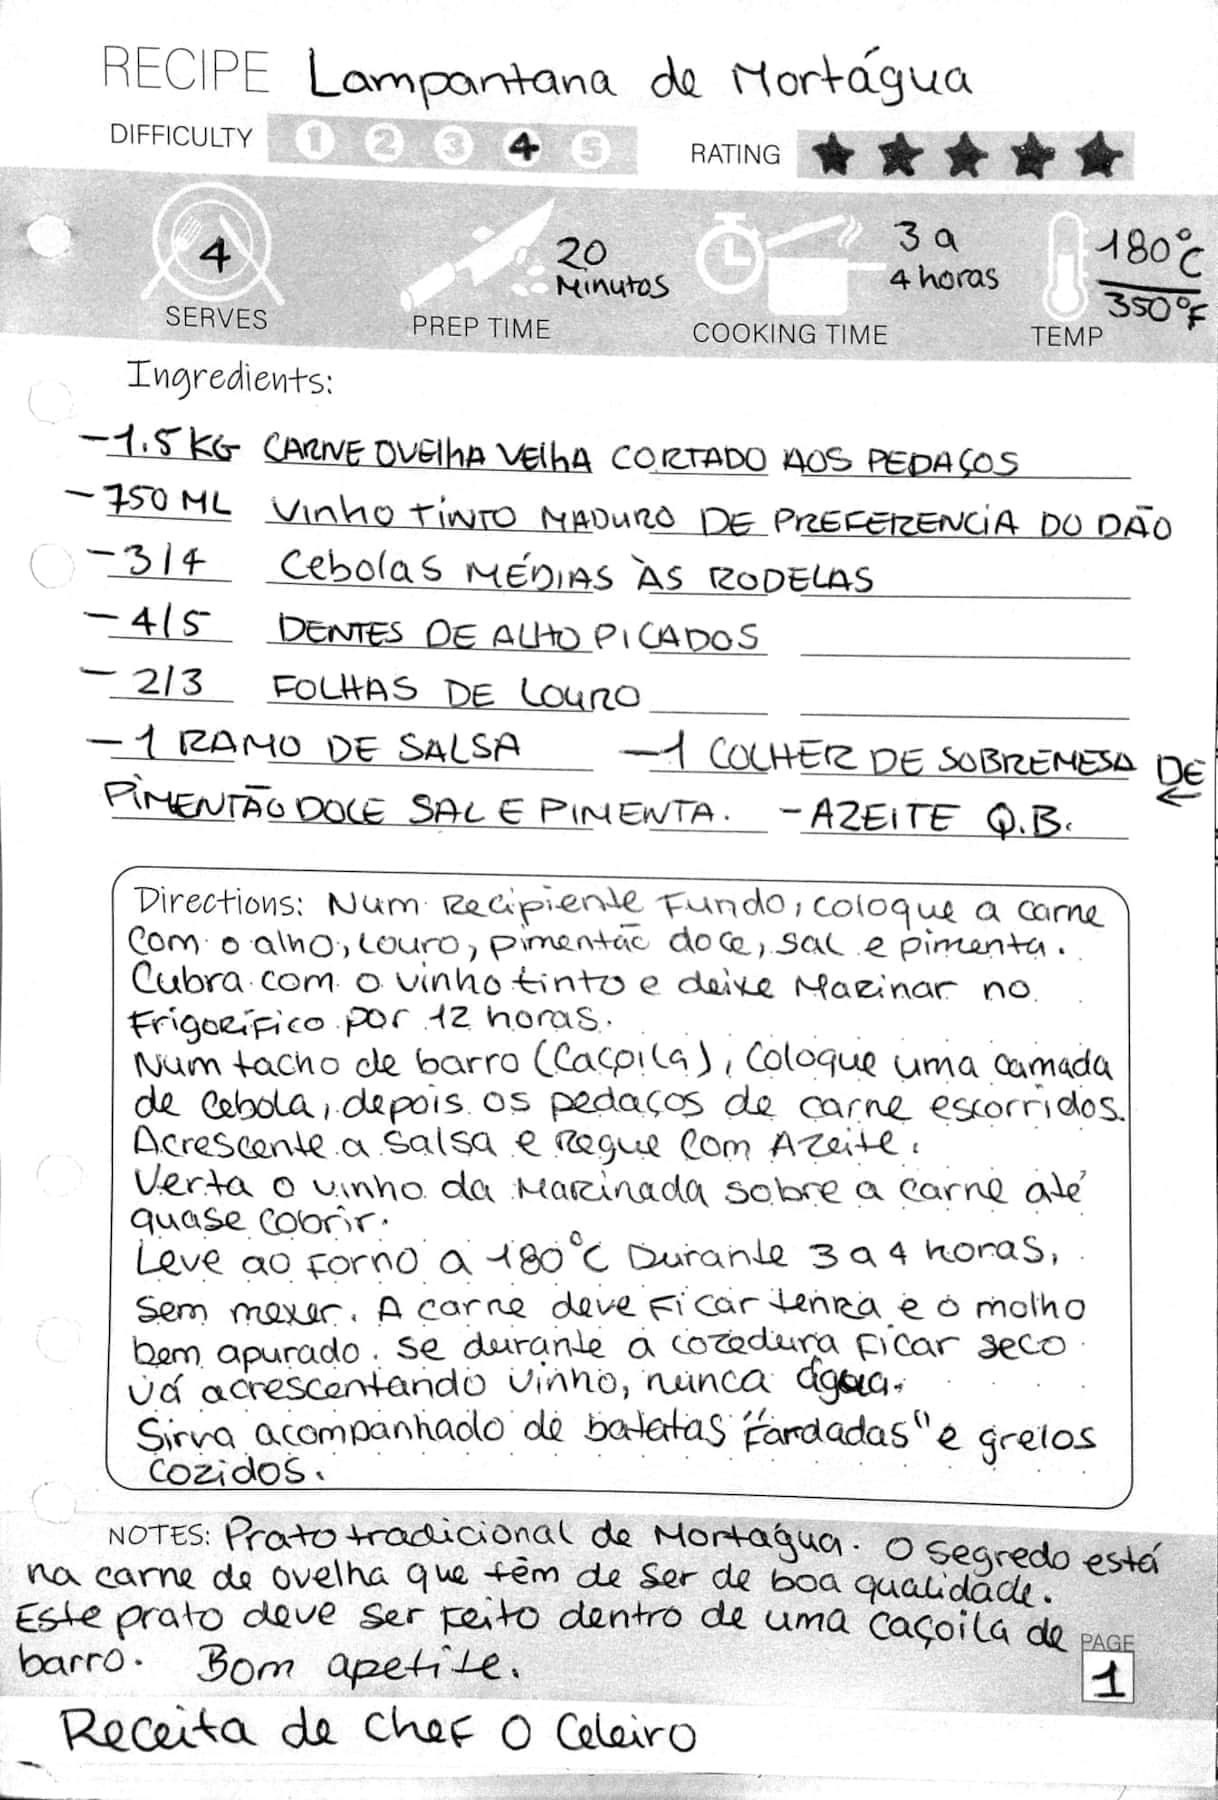 RECIPE Lampantana de Mortágua
DIFFICULTY 1 2 3 4 5 RATING
4 20 Minutos 3 a 4 horas 180°C 350°F
SERVES PREP TIME COOKING TIME TEMP
Ingredients:
- 1.5 KG CARNE OVElhA VElhA CORTADO AOS PEDAÇOS
- 750 ML Vinho TINTO MADURO DE PREFERENCIA DO DÃO
- 3/4 Cebolas MÉDIAS ÀS RODELAS
- 4/5 DENTES DE ALHO PICADOS
- 2/3 FOLHAS DE LOURO
- 1 RAMO DE SALSA - 1 COLHER DE SOBREMESA DE ←
PIMENTÃO DOCE SAL E PIMENTA. - AZEITE Q.B.
Directions: Num Recipiente Fundo, coloque a carne
com o alho, Louro, pimentão doce, sal e pimenta.
Cubra com o vinho tinto e deixe Marinar no
Frigorífico por 12 horas.
Num tacho de barro (Caçoila), Coloque uma camada
de Cebola, depois os pedaços de carne escorridos.
Acrescente a Salsa e Regue Com Azeite.
Verta o vinho da Marinada sobre a carne até
quase cobrir.
Leve ao Forno a 180°C Durante 3 a 4 horas,
Sem mexer. A carne deve Ficar tenra e o molho
bem apurado. Se durante a cozedura Ficar seco
vá acrescentando vinho, nunca água.
Sirva acompanhado de batatas "Fardadas" e grelos
Cozidos.
NOTES: Prato tradicional de Mortágua. O segredo está
na carne de ovelha que têm de ser de boa qualidade.
Este prato deve ser Feito dentro de uma caçoila de
barro. Bom apetite.
PAGE
1
Receita de Chef O Celeiro